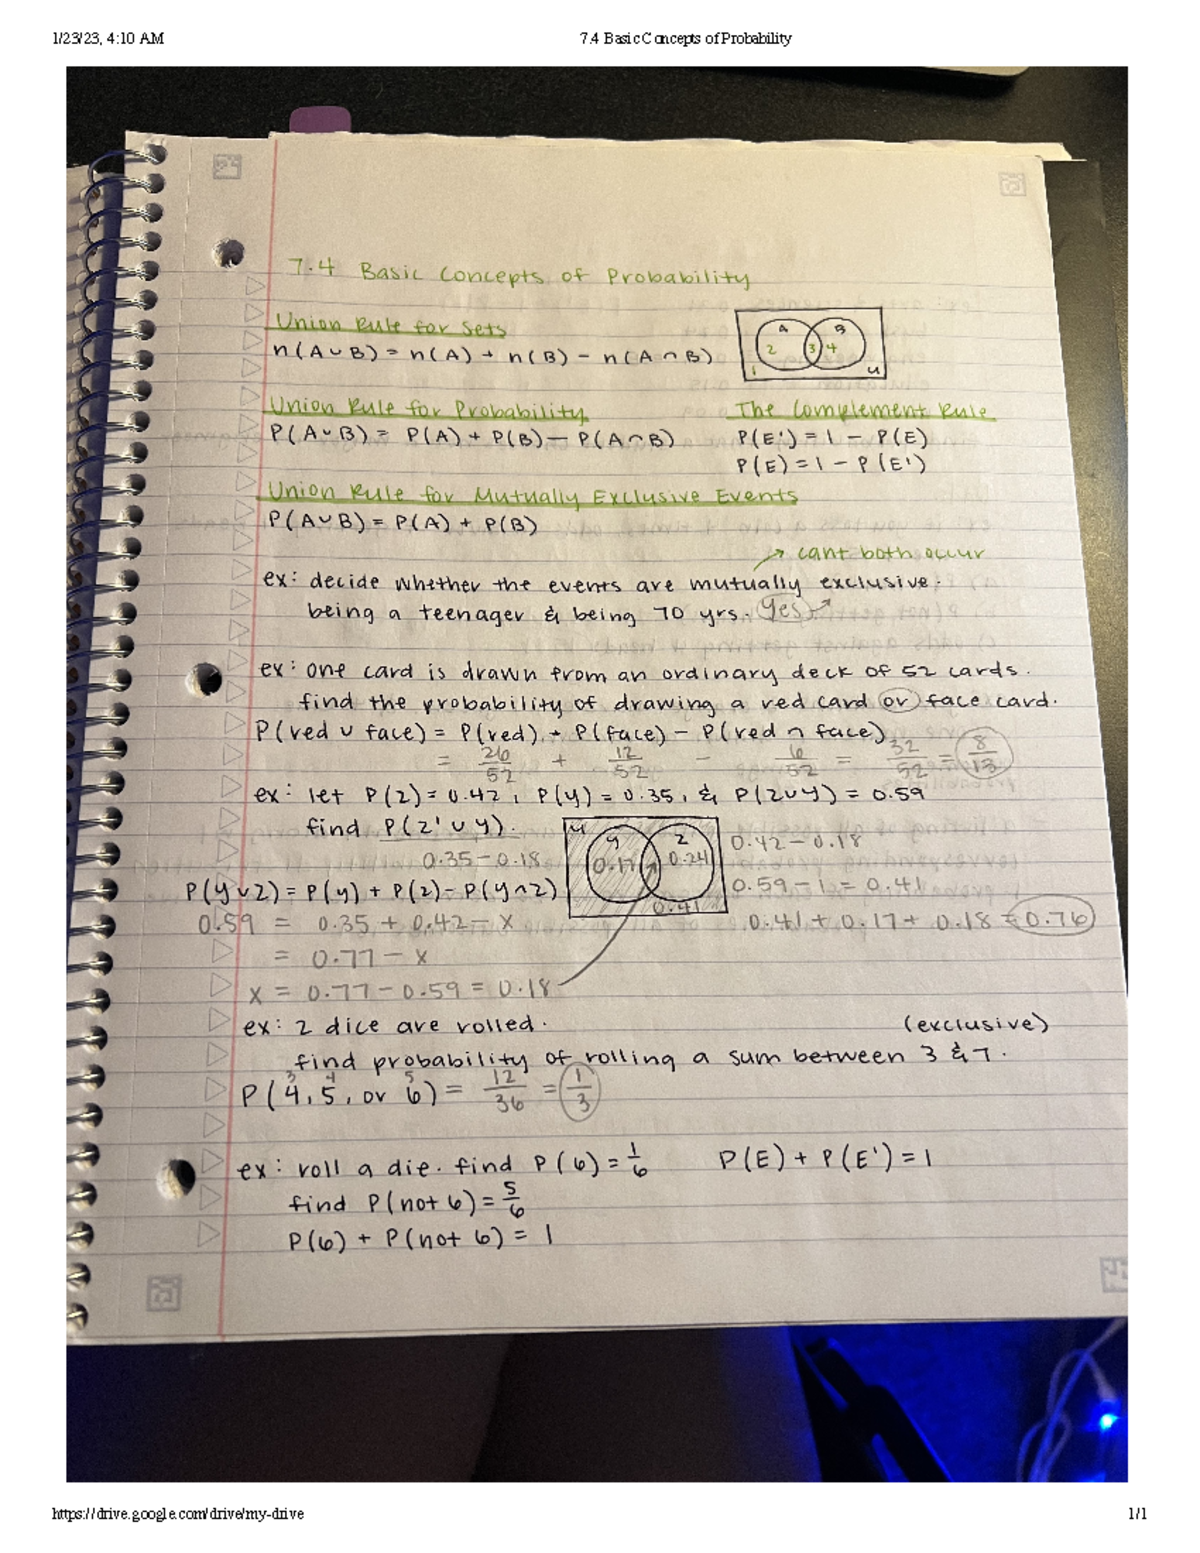 1/23/23, 4:10 AM 7.4 Basic Concepts of Probability
7.4 Basic Concepts of Probability
Union Rule for Sets
n(A∪B) = n(A) + n(B) - n(A∩B)
A B
2 3 4
1 U
Union Rule for Probability
P(A∪B) = P(A) + P(B) - P(A∩B)
The Complement Rule
P(E') = 1 - P(E)
P(E) = 1 - P(E')
Union Rule for Mutually Exclusive Events
P(A∪B) = P(A) + P(B)
→ cant both occur
ex: decide whether the events are mutually exclusive.
being a teenager & being 70 yrs. yes
ex: one card is drawn from an ordinary deck of 52 cards.
find the probability of drawing a red card or face card.
P(red ∪ face) = P(red) + P(face) - P(red ∩ face)
= 26/52 + 12/52 - 6/52 = 32/52 = 8/13
ex: let P(z) = 0.42, P(y) = 0.35, & P(z∪y) = 0.59
find P(z' ∪ y).
U y z
0.17 0.24
0.41
0.42 - 0.18
0.35 - 0.18
0.59 - 1 = 0.41
P(y∪z) = P(y) + P(z) - P(y∩z)
0.59 = 0.35 + 0.42 - x
0.41 + 0.17 + 0.18 = 0.76
= 0.77 - x
x = 0.77 - 0.59 = 0.18
ex: 2 dice are rolled. (exclusive)
find probability of rolling a sum between 3 & 7.
3 4 5
P(4, 5, or 6) = 12/36 = 1/3
ex: roll a die. find P(6) = 1/6 P(E) + P(E') = 1
find P(not 6) = 5/6
P(6) + P(not 6) = 1
https://drive.google.com/drive/my-drive 1/1